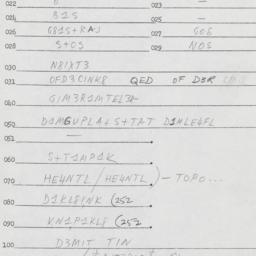 022 023 —
024 B1S 025 —
026 G81S+RAJ 027 GO6
028 S+OS 029 NOS
030 N81XT3
031 OFD3CINK8 QED OF D3R
040 GIM3R1MTEL34
050 D1MGUPLA+S+TAT D1MLE4FL
051 —
060 S+T1MP1K
070 HE4NTL / HE4NTL ) — TOPO...
080 D1KL8INK (252
090 KN1P1KL8 (252
100 D3MIT TIN